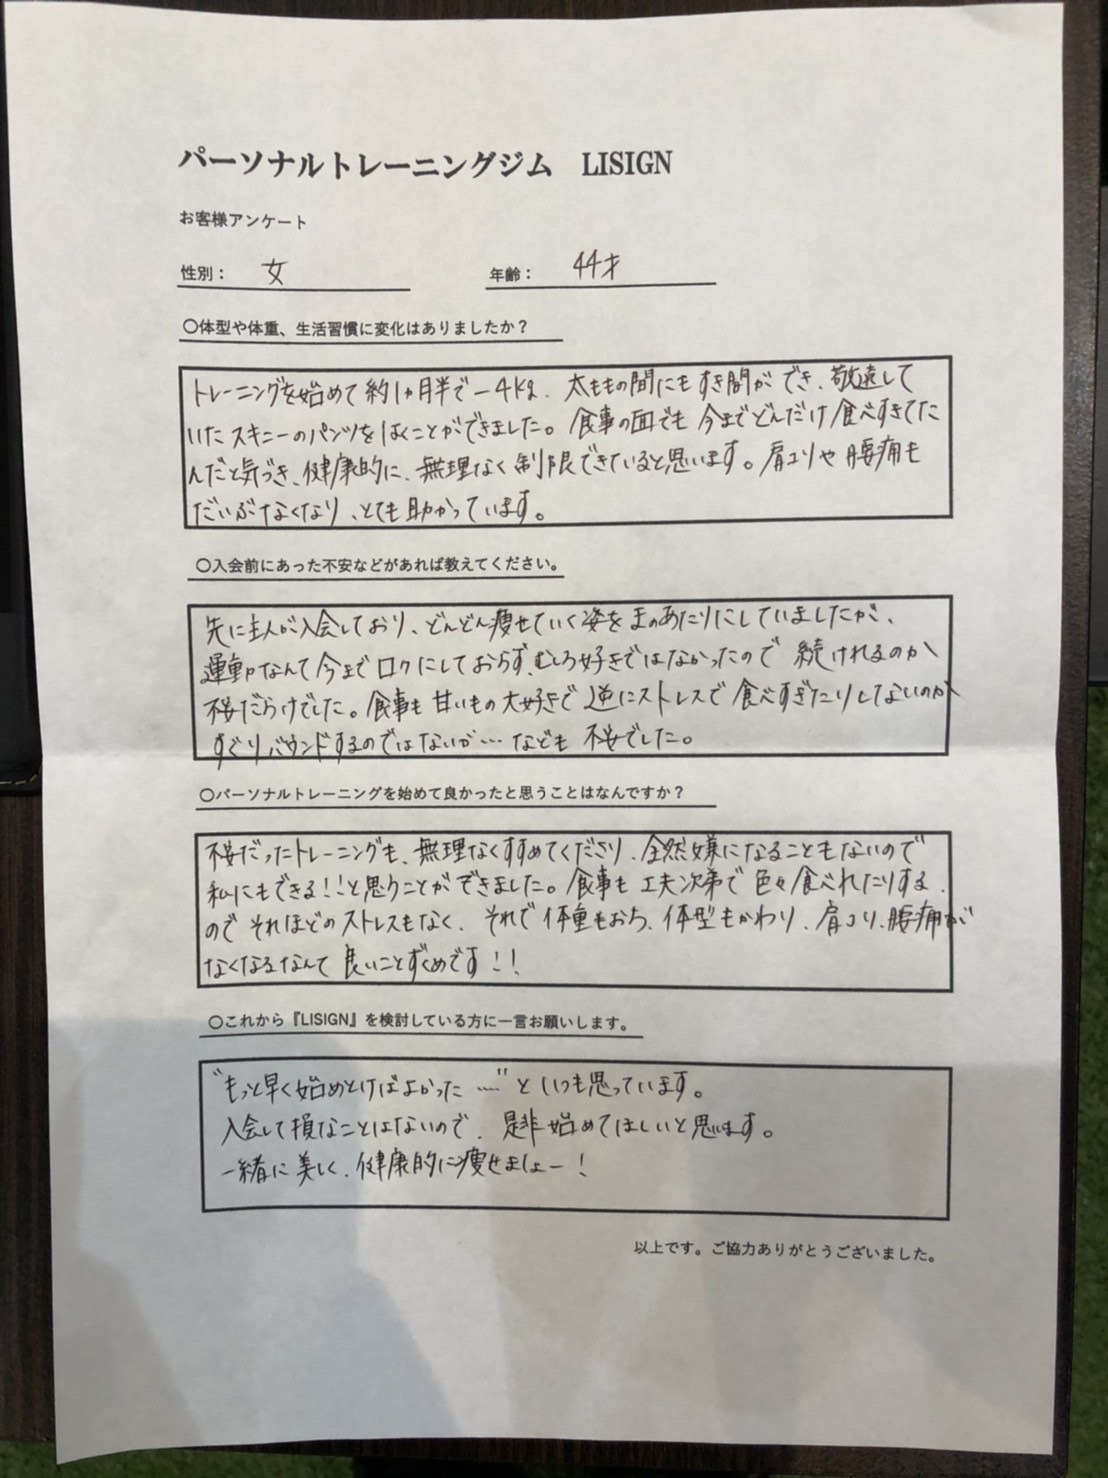 パーソナルトレーニングジム LISIGN
お客様アンケート
性別： 女 年齢： 44才
〇体型や体重、生活習慣に変化はありましたか？
トレーニングを始めて約1ヵ月半で－4kg、太ももの間にもすき間ができ、敬遠して
いたスキニーのパンツをはくことができました。食事の面でも今までどんだけ食べすぎてた
んだと気づき、健康的に、無理なく制限できていると思います。肩コリや腰痛も
だいぶなくなり、とても助かっています。
〇入会前にあった不安などがあれば教えてください。
先に主人が入会しており、どんどん痩せていく姿をまのあたりにしていましたが、
運動なんて今までロクにしておらず、むしろ好きではなかったので続けれるのか、
不安だらけでした。食事も甘いもの大好きで逆にストレスで食べすぎたりしないのか、
すぐリバウンドするのではないか…なども不安でした。
〇パーソナルトレーニングを始めて良かったと思うことはなんですか？
不安だったトレーニングも、無理なくすすめてくださり、全然嫌になることもないので
私にもできる！！と思うことができました。食事も工夫次第で色々食べれたりする
のでそれほどのストレスもなく、それで体重もおち、体型もかわり、肩コリ、腰痛が
なくなるなんて良いことずくめです！！
〇これから『LISIGN』を検討している方に一言お願いします。
"もっと早く始めとけばよかった……"といつも思っています。
入会して損なことはないので、是非始めてほしいと思います。
一緒に美しく、健康的に痩せましょー！
以上です。ご協力ありがとうございました。